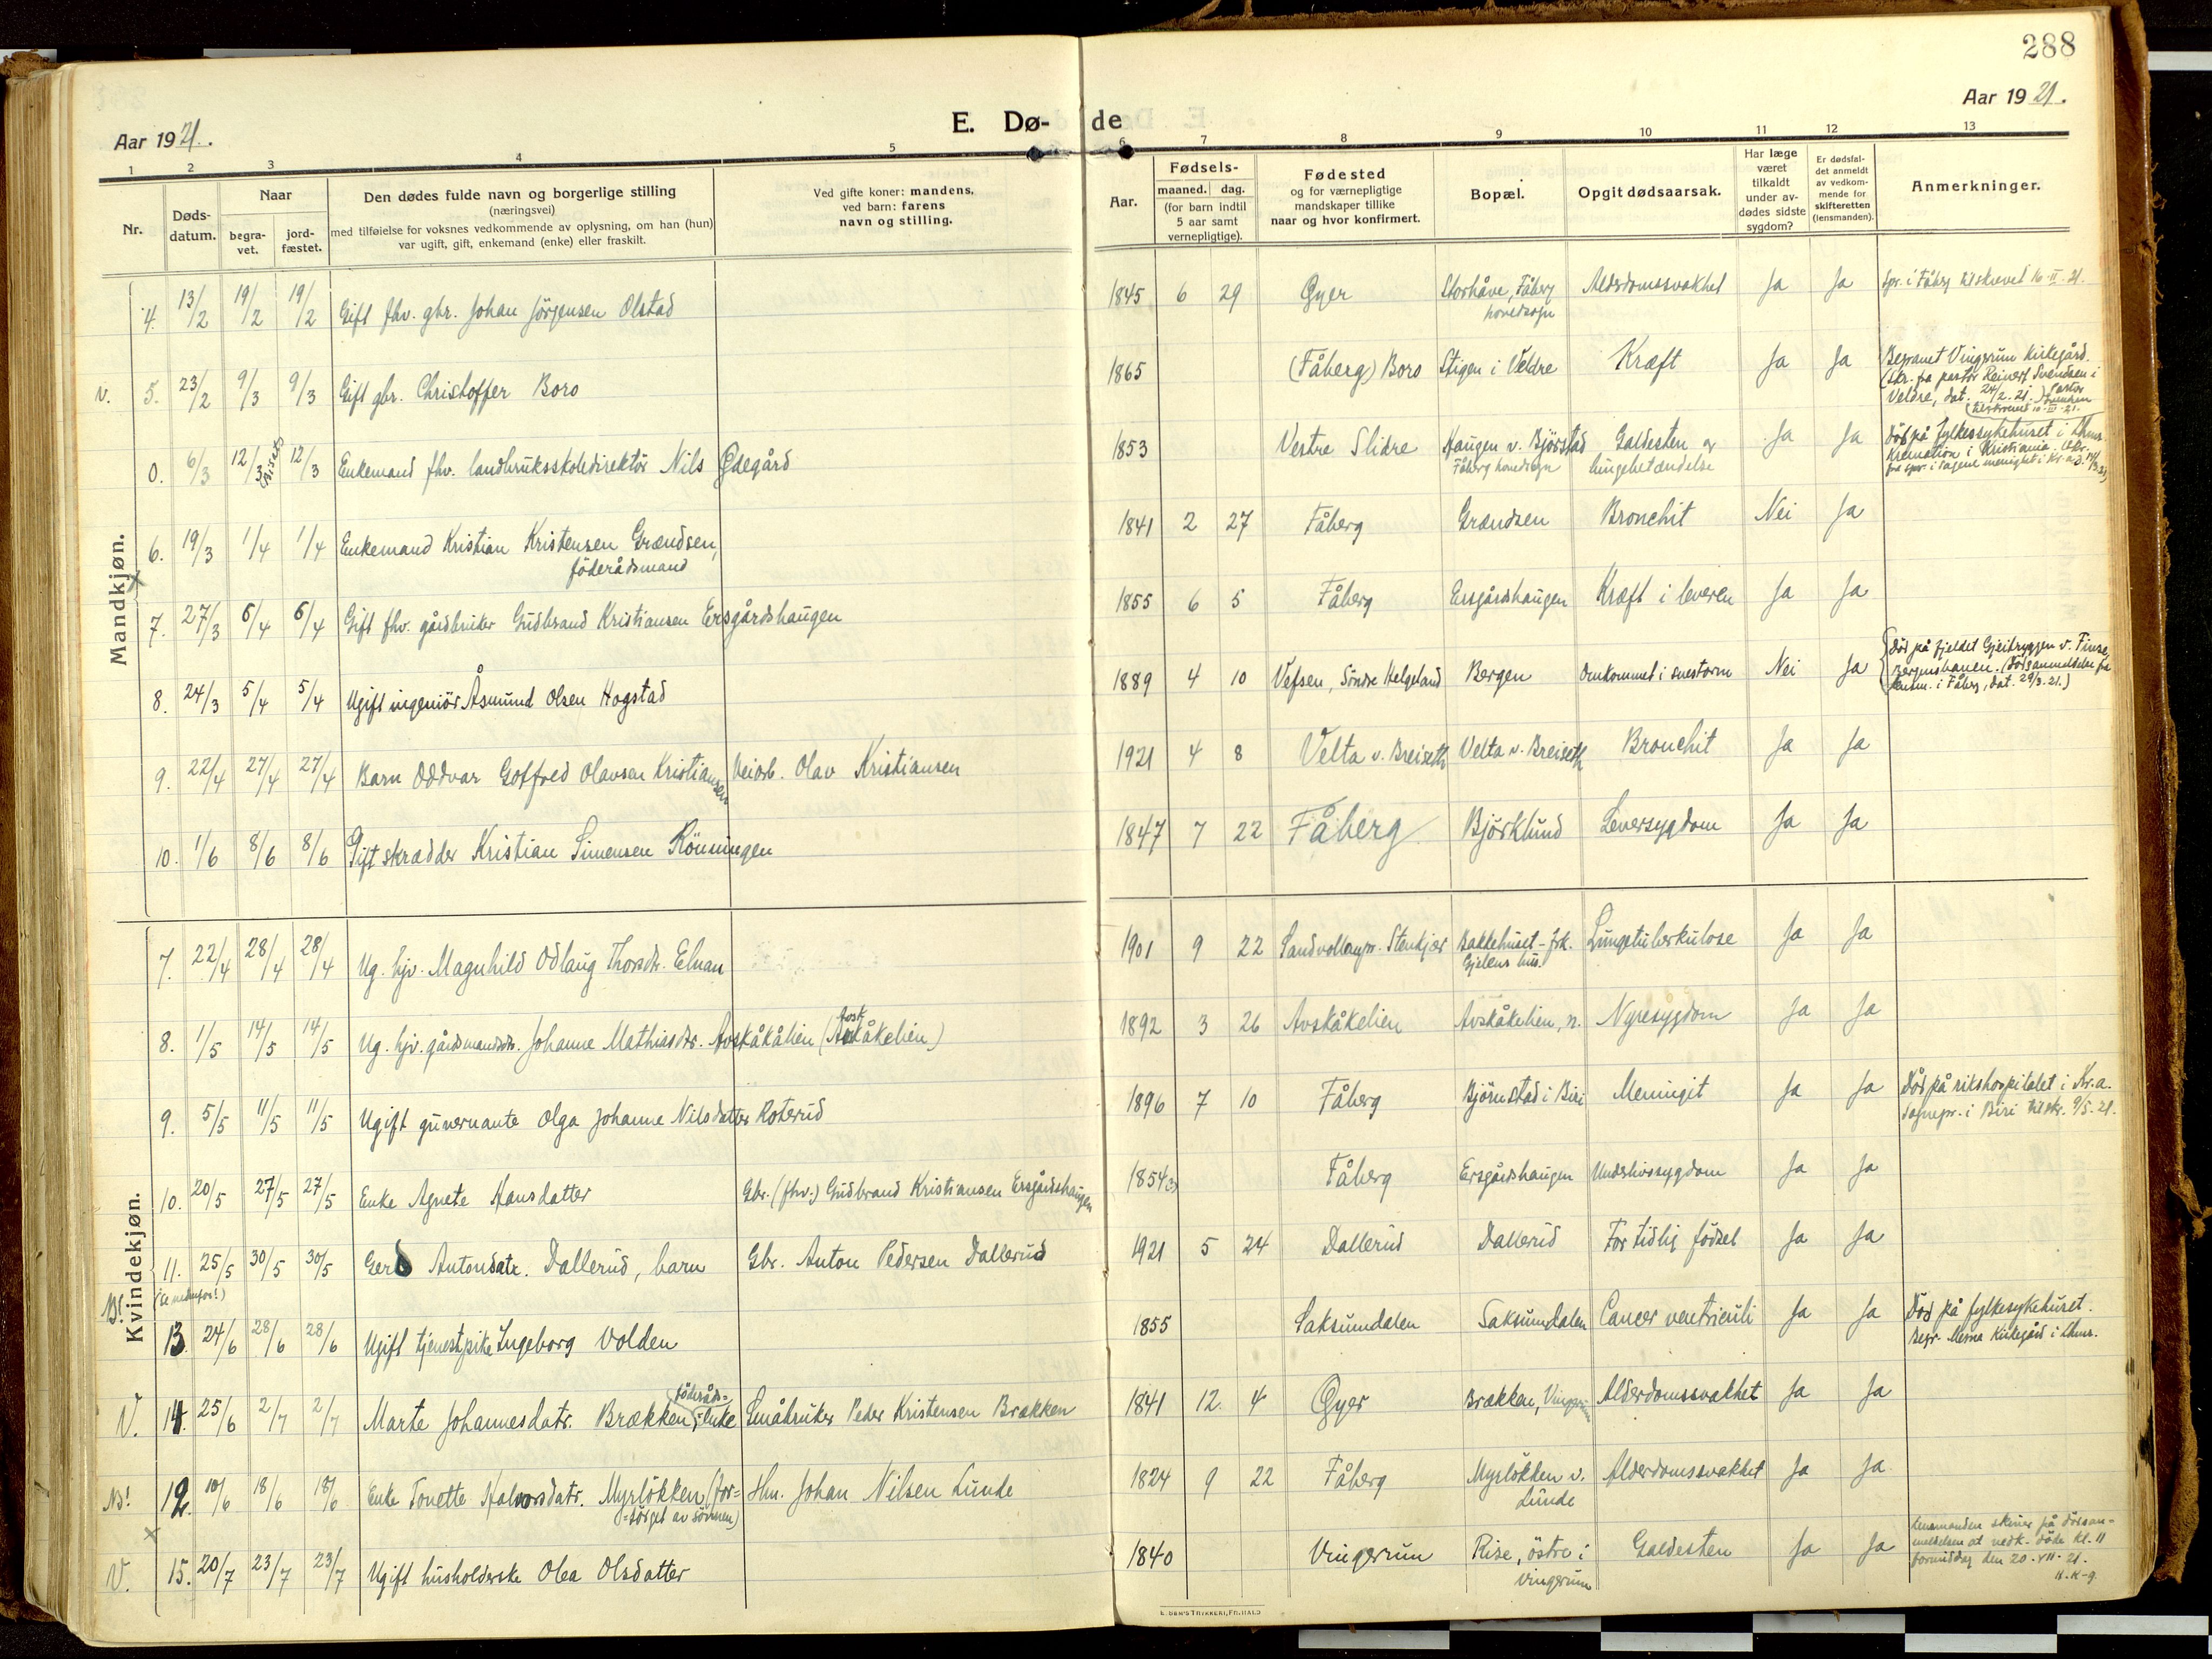 288
Aar 1921.
E. Dø-de
Aar 1921.
1 2 3 4 5 6 7 8 9 10 11 12 13
Nr.
Døds-
datum.
Naar
begra-
vet.
jord-
fæstet.
Den dødes fulde navn og borgerlige stilling
(næringsvei)
med tilføielse for voksnes vedkommende av oplysning, om han (hun)
var ugift, gift, enkemand (enke) eller fraskilt.
Ved gifte koner: mandens,
ved barn: farens
navn og stilling.
Aar.
Fødsels-
maaned. dag.
(for barn indtil
5 aar samt
vernepligtige).
Fødested
og for værnepligtige
mandskaper tillike
naar og hvor konfirmert.
Bopæl.
Opgit dødsaarsak.
Har læge
været
tilkaldt
under av-
dødes sidste
sygdom?
Er dødsfal-
det anmeldt
av vedkom-
mende for
skifteretten
(lensmanden).
Anmerkninger.
Mandkjøn.
4. 13/2 19/2 19/2 Gift fhv. gbr. Johan Jörgensen Olstad 1845 6 29 Øyer Storhåve, Fåberg Alderdomssvakhet Ja Ja Spr. i Fåberg tilskrevet 16-II-21.
hovedsogn
V. 5. 23/2 9/3 9/3 Gift gbr. Christoffer Boro 1865 (Fåberg) Boro Stigen i Veldre Kræft Ja Ja Begravet Vingrum kirkegård.
(Skr. fra pastor Reinert Svendsen i
Veldre, dat. 24/2-21.) Pastor
tilskrevet 10-III-21.
0. 6/3 12/3 (bisat) 12/3 Enkemand fhv. landbruksskoledirektör Nils Ødegård 1853 Vestre Slidre Haugen v. Björstad Galdesten og Ja Ja död på fylkessykehuset i Lhmr.
Fåberg hovedsogn lungebetændelse
Kremation i Kristiania. (Skr.
fra spr. i Sagene menighet i Kr.a d.
6. 19/3 1/4 1/4 Enkemand Kristian Kristensen Grændsen, 1841 2 27 Fåberg Grændsen Bronchit Nei Ja
föderådsmand
7. 27/3 6/4 6/4 Gift fhv. gårdbruker Gudbrand Kristiansen Ersgårdshaugen 1855 6 5 Fåberg Ersgårdshaugen Kræft i leveren Ja Ja
8. 24/3 5/4 5/4 Ugift ingeniör Åsmund Olsen Hogstad 1889 4 10 Vefsen, Söndre Helgeland Bergen Omkommet i snestorm Nei Ja död på fjeldet Gjeitryggen v. Finse,
Bergensbanen. (Dödsanmeldelse fra
lensm. i Fåberg, dat. 29/3-21.)
9. 22/4 27/4 27/4 Barn Oddvar Gotfred Olavsen Kristiansen Veiarb. Olav Kristiansen 1921 4 8 Velta v. Breiseth Velta v. Breiseth Bronchit Ja Ja
10. 1/6 8/6 8/6 Gift skrædder Kristian Simensen Rönningen 1847 7 22 Fåberg Björklund Leversygdom Ja Ja
Kvindekjøn.
7. 22/4 28/4 28/4 Ug. hjv. Magnhild Odlaug Thorsdtr. Elnan 1901 9 22 Sandvollanpr. Stenkjær Bakkehuset - frk. Lungetuberkulose Ja Ja
Gjelens hus.
8. 1/5 14/5 14/5 Ug. hjv. gårdmandsdtr. Johanne Mathiasdtr. Avskåkålien (Avskåkelien) 1892 3 26 Avskåkelien Avskåkelien, n. Nyresygdom Ja Ja
9. 5/5 11/5 11/5 Ugift guvernante Olga Johanne Nilsdatter Roterud 1896 7 10 Fåberg Björnstad i Biri Meningit Ja Ja Död på rikshospitalet i Kr.a.
Sognepr. i Biri tilskr. 9/5-21.
10. 20/5 27/5 27/5 Enke Agnete Hansdatter Gbr. (fhv.) Gudbrand Kristiansen Ersgårdshaugen 1854 Fåberg Ersgårdshaugen Underlivssygdom Ja Ja
11. 25/5 30/5 30/5 Gerd Antonsdatr. Dallerud, barn Gbr. Anton Pedersen Dallerud 1921 5 24 Dallerud Dallerud For tidlig födsel Ja Ja
(se nedenfor!)
NB! 13. 24/6 28/6 28/6 Ugift tjenestpike Ingeborg Volden 1855 Saksumdalen Saksumdalen Cancer ventriculi Ja Ja Död på fylkesykehuset.
Begr. Mesna kirkegård i Lhmr.
V. 14. 25/6 2/7 2/7 Marte Johannesdatr. Brækken, föderåds-enke Småbruker Peder Kristensen Brækken 1841 12 4 Øyer Brækken, Vingrum Alderdomssvakhet Ja Ja
NB! 12. 10/6 18/6 18/6 Enke Tonette Halvorsdatr. Myrlökken (for- Hm. Johan Nilsen Lunde 1824 9 22 Fåberg Myrlökken v. Alderdomssvakhet Ja Ja
=sörget av sönnen) Lunde
V. 15. 20/7 23/7 23/7 Ugift husholderske Olea Olsdatter 1840 Vingerum Rise, östre i Galdesten Ja Ja Lensmanden skriver på dödsan-
Vingerum
meldelsen at vedk. döde kl. 11
formiddag den 20-VII-21.
H.K-g.
E. SEM'S TRYKKERI, FR.HALD